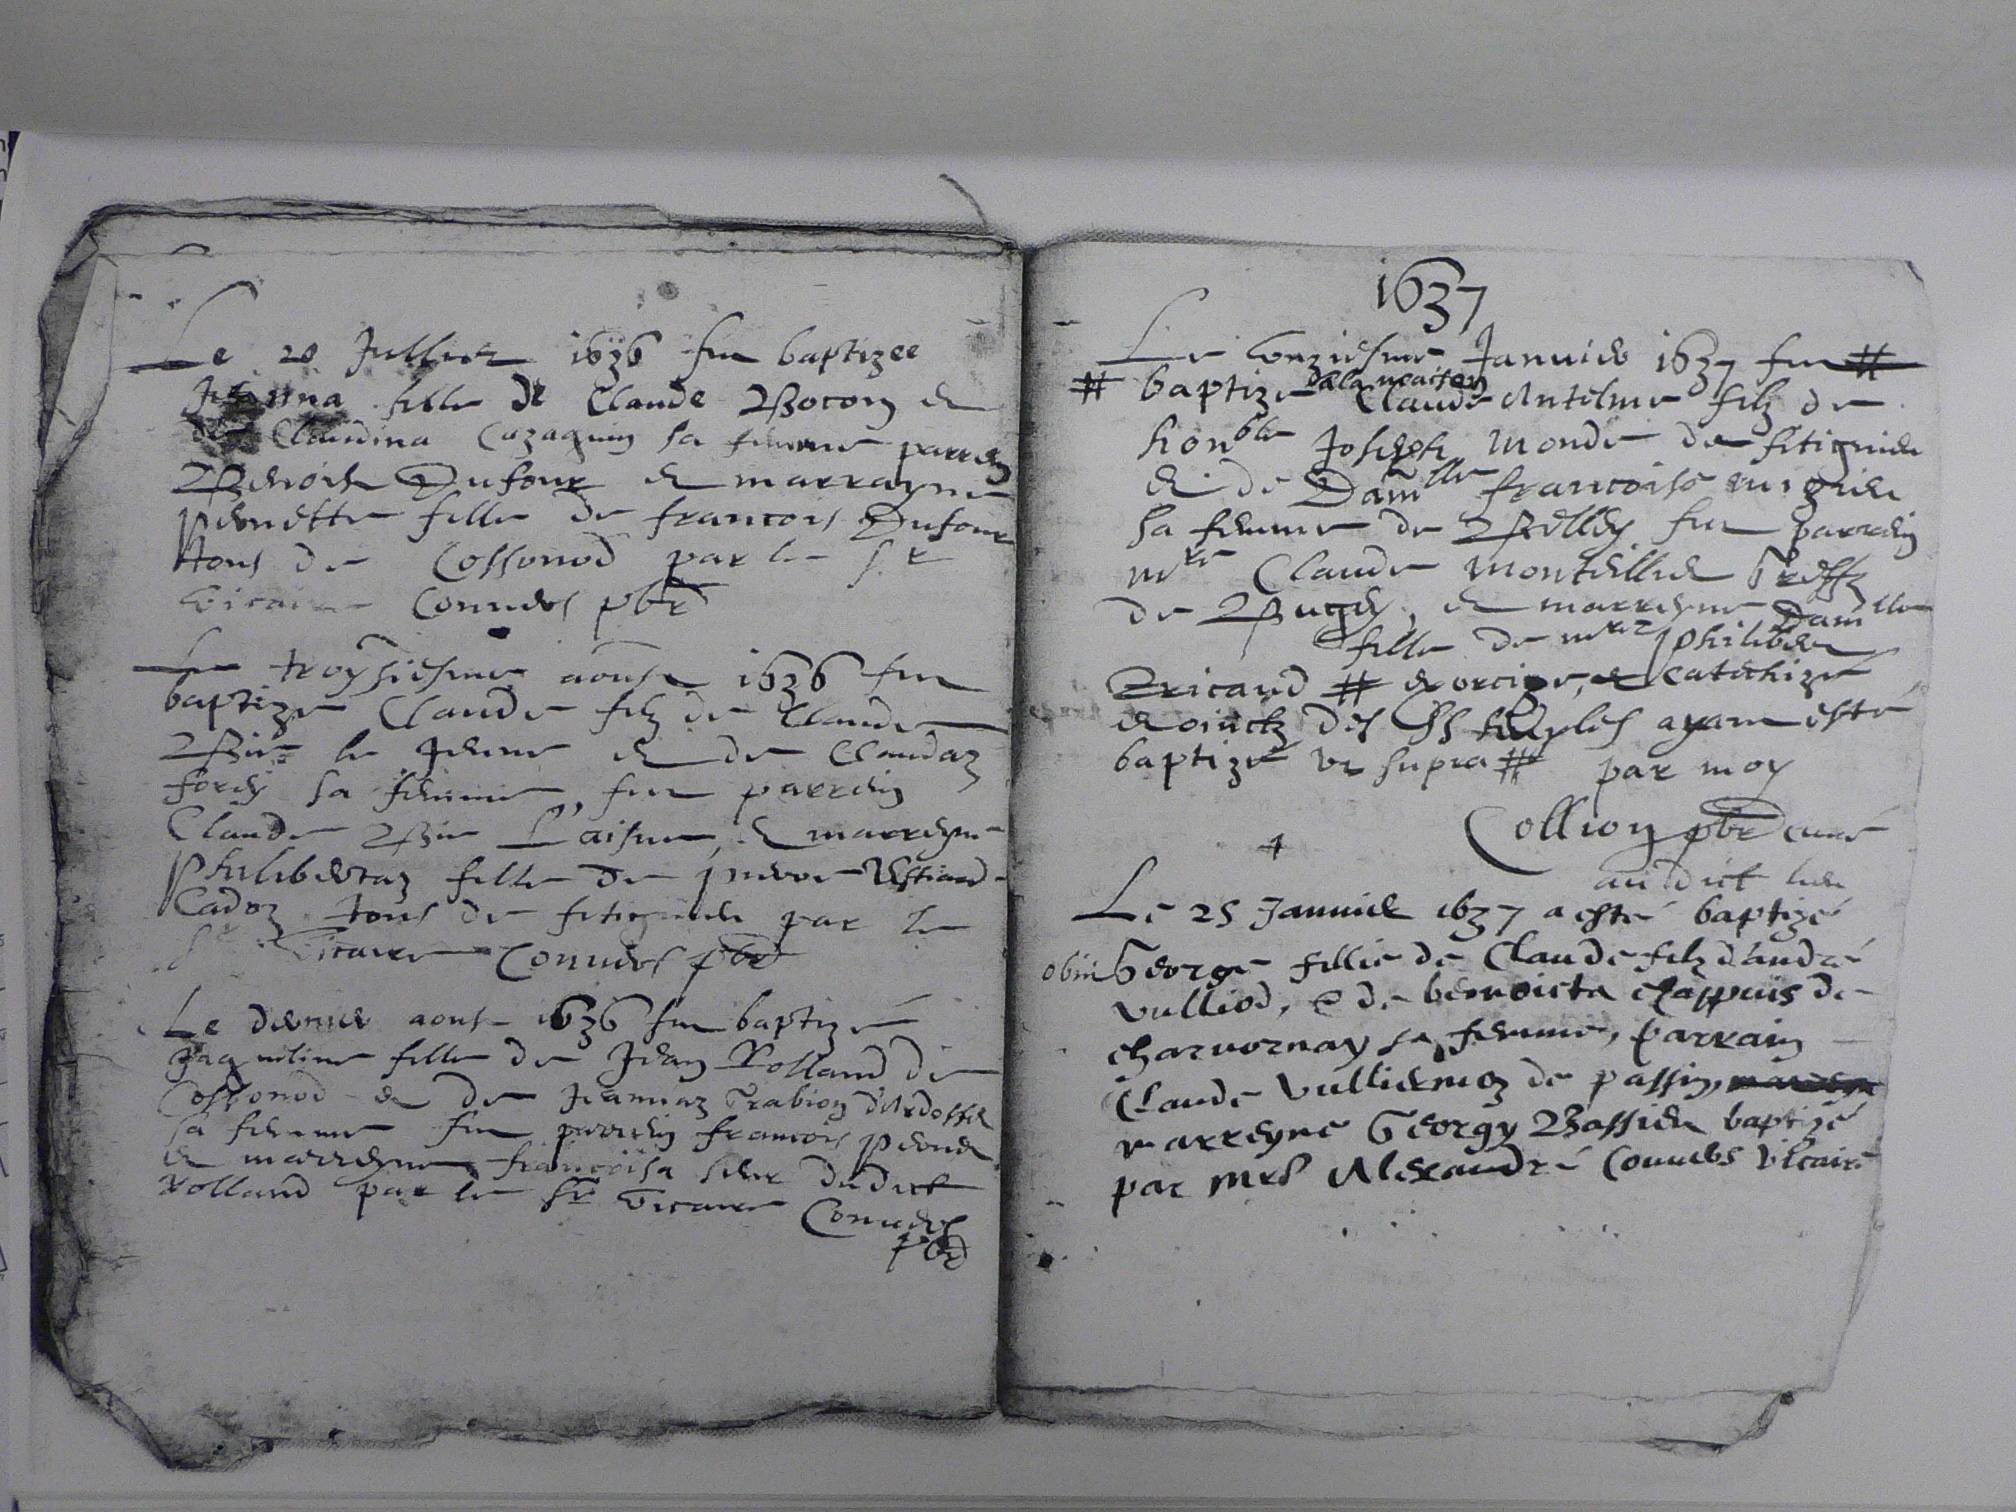 Le 20 Jullier 1636 fut baptizee
Jeanna fille de Claude Bocon et
de Claudina Cazagnin sa femme parrein
Benoist Dufour et marrayne
pernette fille de francois Dufour
tous de Cossonod par le Sr
vicaire Conners pbr
Le troysiesme aoust 1636 fut
baptize Claude filz de Claude
Bin le Jeune et de Claudaz
forey sa femme, fut parrein
Claude Bin L'aisne, et marreyne
philibertaz fille de pierre
Cadoz tous de fitignieu par le
Sr Vicaire Conners pbr
Le dernier aoust 1636 fut baptizé
Jaqueline fille de Jean Rolland de
Cossonod et de Jeannaz Trabion d'Ardossel
sa femme fut parrein francois
et marreyne françoisa seur dudict
Rolland par le Sr vicaire Conners
pbr
1637
Le unziesme Janvier 1637 fut #
# baptize dela maison Claude Antelme filz de
honble Joseph Monde de fitignieu
et de Damlle francoise migieu
sa femme de Belley fut parrein
mre Claude montillet Greffr
de Bugey, et marreyne Damlle
fille de mre philibert
Bricaud # exorcize, et catechizé
et oinctz des SS huyles ayant esté
baptizé ut supra # par moy
Collion pbr curé
audict lieu
Le 25 Januier 1637 a esté baptizé
obiit George fillie de Claude filz d'andré
vulliod, & de benoicta chappuis de
charvornay sa femme, parrain
Claude Vulliermoz de passin,
marreyne Georgy Bassieu baptizé
par mre Alexandre Conners vicaire